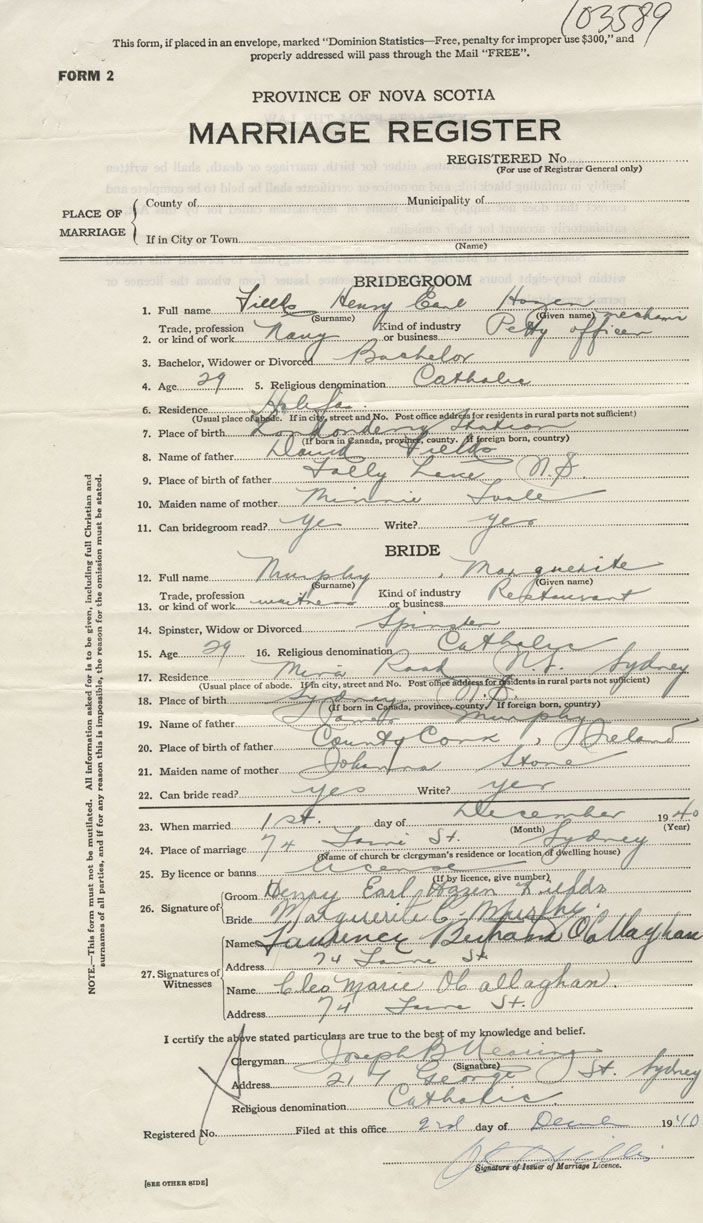 103589
This form, if placed in an envelope, marked "Dominion Statistics—Free, penalty for improper use $300," and
properly addressed will pass through the Mail "FREE".
FORM 2
PROVINCE OF NOVA SCOTIA
MARRIAGE REGISTER
REGISTERED No.
(For use of Registrar General only)
PLACE OF MARRIAGE
County of Municipality of
If in City or Town
(Name)
BRIDEGROOM
1. Full name Fields Henry Earl Hazen
(Surname) (Given name)
2. Trade, profession or kind of work Navy Kind of industry or business Petty officer
3. Bachelor, Widower or Divorced Bachelor
4. Age 29 5. Religious denomination Catholic
6. Residence Halifax
(Usual place of abode. If in city, street and No. Post office address for residents in rural parts not sufficient)
7. Place of birth Londonderry Station
(If born in Canada, province, county. If foreign born, country)
8. Name of father David Fields
9. Place of birth of father Folly Lake N.S.
10. Maiden name of mother Minnie
11. Can bridegroom read? Yes Write? yes
BRIDE
12. Full name Murphy, Marguerite
(Surname) (Given name)
13. Trade, profession or kind of work waitress Kind of industry or business Restaurant
14. Spinster, Widow or Divorced Spinster
15. Age 29 16. Religious denomination Catholic
17. Residence Mira Road N.S. Sydney
(Usual place of abode. If in city, street and No. Post office address for residents in rural parts not sufficient)
18. Place of birth Sydney N.S.
(If born in Canada, province, county. If foreign born, country)
19. Name of father James Murphy
20. Place of birth of father County Cork, Ireland
21. Maiden name of mother Johanna Stone
22. Can bride read? yes Write? yes
23. When married 1st. day of December 1940
(Month) (Year)
24. Place of marriage 74 St. Sydney
(Name of church or clergyman's residence or location of dwelling house)
25. By licence or banns license
(If by licence, give number)
26. Signature of
Groom Henry Earl Hazen Fields
Bride Marguerite C. Murphy.
27. Signatures of Witnesses
Name Laurence Bernard O'Callaghan
Address 74 St.
Name Cleo Marie O'Callaghan.
Address 74 St.
I certify the above stated particulars are true to the best of my knowledge and belief.
Clergyman Joseph B
(Signature)
Address 217 George St. Sydney
Religious denomination Catholic.
Registered No. Filed at this office 2nd day of 1940
Signature of Issuer of Marriage Licence.
[SEE OTHER SIDE]
NOTE.—This form must not be mutilated. All information asked for is to be given, including full Christian and
surnames of all parties, and if for any reason this is impossible, the reason for the omission must be stated.